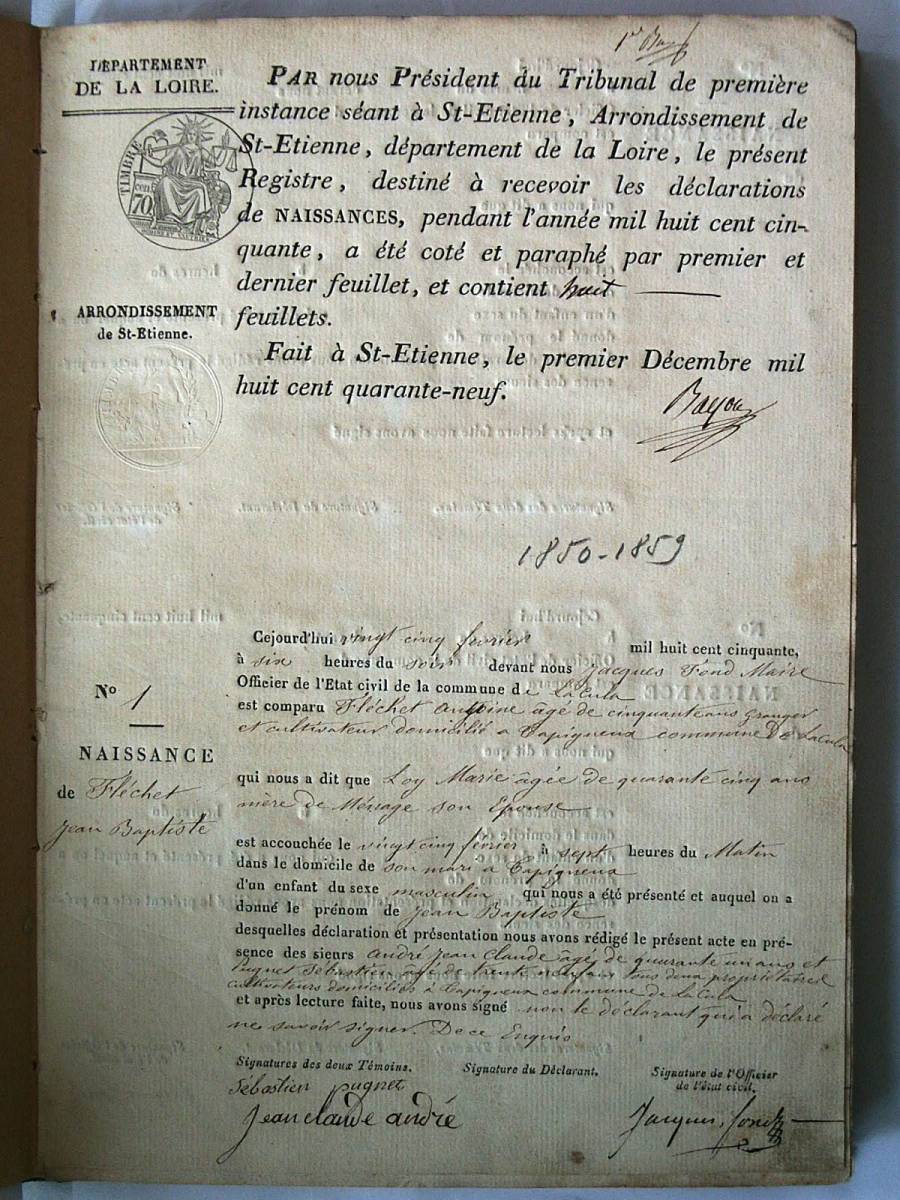 1er Bay
DÉPARTEMENT
DE LA LOIRE.
TIMBRE
cen.
70
PAR nous Président du Tribunal de première
instance séant à St-Etienne, Arrondissement de
St-Etienne, département de la Loire, le présent
Registre, destiné à recevoir les déclarations
de NAISSANCES, pendant l'année mil huit cent cin-
quante, a été coté et paraphé par premier et
dernier feuillet, et contient huit
feuillets.
Fait à St-Etienne, le premier Décembre mil
huit cent quarante-neuf.
ARRONDISSEMENT
de St-Etienne.
Bayon
1850-1859
No 1
NAISSANCE
de Fléchet
Jean Baptiste
Cejourd'hui vingt cinq fevrier mil huit cent cinquante,
à six heures du soir devant nous Jacques Fond Maire
Officier de l'Etat civil de la commune de LaCula
est comparu Fléchet Antoine âgé de cinquante ans Granger
et cultivateur domicilié a Tapigneux commune De LaCula
qui nous a dit que Loy Marie âgée de quarante cinq ans
mère de Ménage son Epouse
est accouchée le vingt cinq fevrier à sept heures du Matin
dans le domicile de son mari a Tapigneux
d'un enfant du sexe masculin qui nous a été présenté et auquel on a
donné le prénom de Jean Baptiste
desquelles déclaration et présentation nous avons rédigé le présent acte en pré-
sence des sieurs André Jean Claude âgé de quarante un ans et
Pugnet Sébastien âgé de trente neuf ans tous deux propriétaires
cultivateurs domiciliés à Tapigneux commune de LaCula
et après lecture faite, nous avons signé non le déclarant qui a déclaré
ne savoir signer. De ce Enquis
Signatures des deux Témoins. Signature du Déclarant. Signature de l'Officier
de l'état civil.
Sébastien pugnet
Jean claude andré
Jacques fond